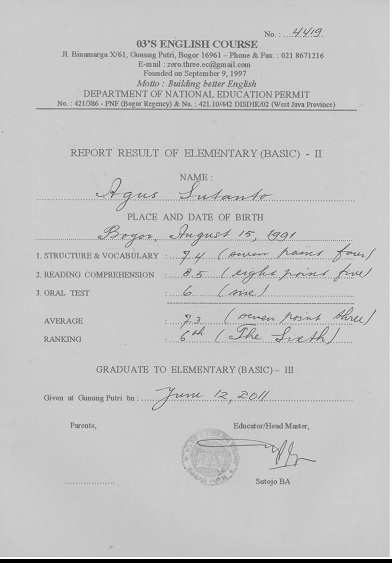 No. : 4419
03'S ENGLISH COURSE
Jl. Binamarga X/61, Gunung Putri, Bogor 16961 - Phone & Fax : 021 8671216
E-mail : zero.three.ec@gmail.com
Founded on September 9, 1997
Motto : Building better English
DEPARTMENT OF NATIONAL EDUCATION PERMIT
No. : 421/386 - PNF (Bogor Regency) & No. : 421.10/442 DISDIK/02 (West Java Province)
REPORT RESULT OF ELEMENTARY (BASIC) - II
NAME :
Agus Sutanto
PLACE AND DATE OF BIRTH
Bogor, August 15, 1991
1. STRUCTURE & VOCABULARY : 7.4 (seven point four)
2. READING COMPREHENSION : 8.5 (eight point five)
3. ORAL TEST : 6 (six)
AVERAGE : 7.3 (seven point three)
RANKING : 6th (The Sixth)
GRADUATE TO ELEMENTARY (BASIC) - III
Given at Gunung Putri on : June 12, 2011
Parents, Educator/Head Master,
Sutojo BA